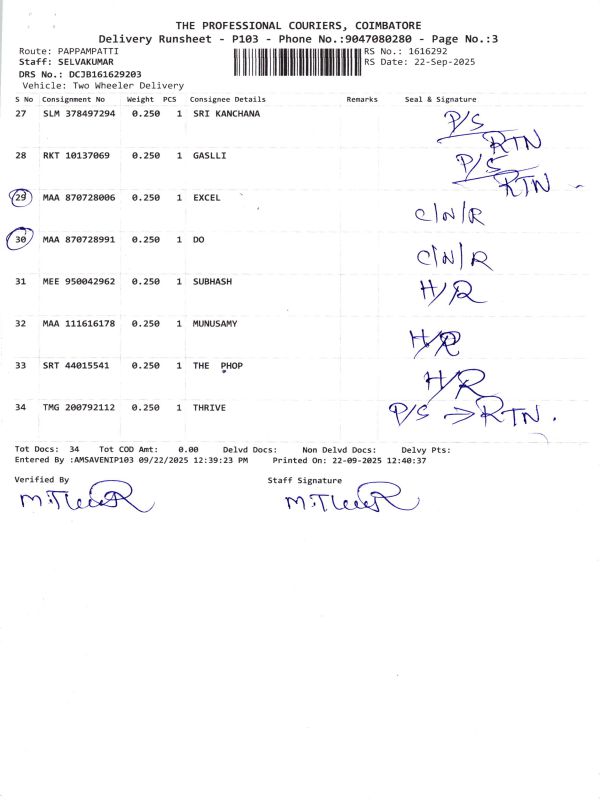 THE PROFESSIONAL COURIERS, COIMBATORE
Delivery Runsheet - P103 - Phone No.:9047080280 - Page No.:3
Route: PAPPAMPATTI RS No.: 1616292
Staff: SELVAKUMAR RS Date: 22-Sep-2025
DRS No.: DCJB161629203
Vehicle: Two Wheeler Delivery
S No Consignment No Weight PCS Consignee Details Remarks Seal & Signature
27 SLM 378497294 0.250 1 SRI KANCHANA P/S RTN
28 RKT 10137069 0.250 1 GASLLI P/S RTN
29 MAA 870728006 0.250 1 EXCEL C/N/R
30 MAA 870728991 0.250 1 DO C/N/R
31 MEE 950042962 0.250 1 SUBHASH H/R
32 MAA 111616178 0.250 1 MUNUSAMY H/R
33 SRT 44015541 0.250 1 THE PHOP H/R
34 TMG 200792112 0.250 1 THRIVE P/S → RTN.
Tot Docs: 34 Tot COD Amt: 0.00 Delvd Docs: Non Delvd Docs: Delvy Pts:
Entered By :AMSAVENIP103 09/22/2025 12:39:23 PM Printed On: 22-09-2025 12:40:37
Verified By Staff Signature